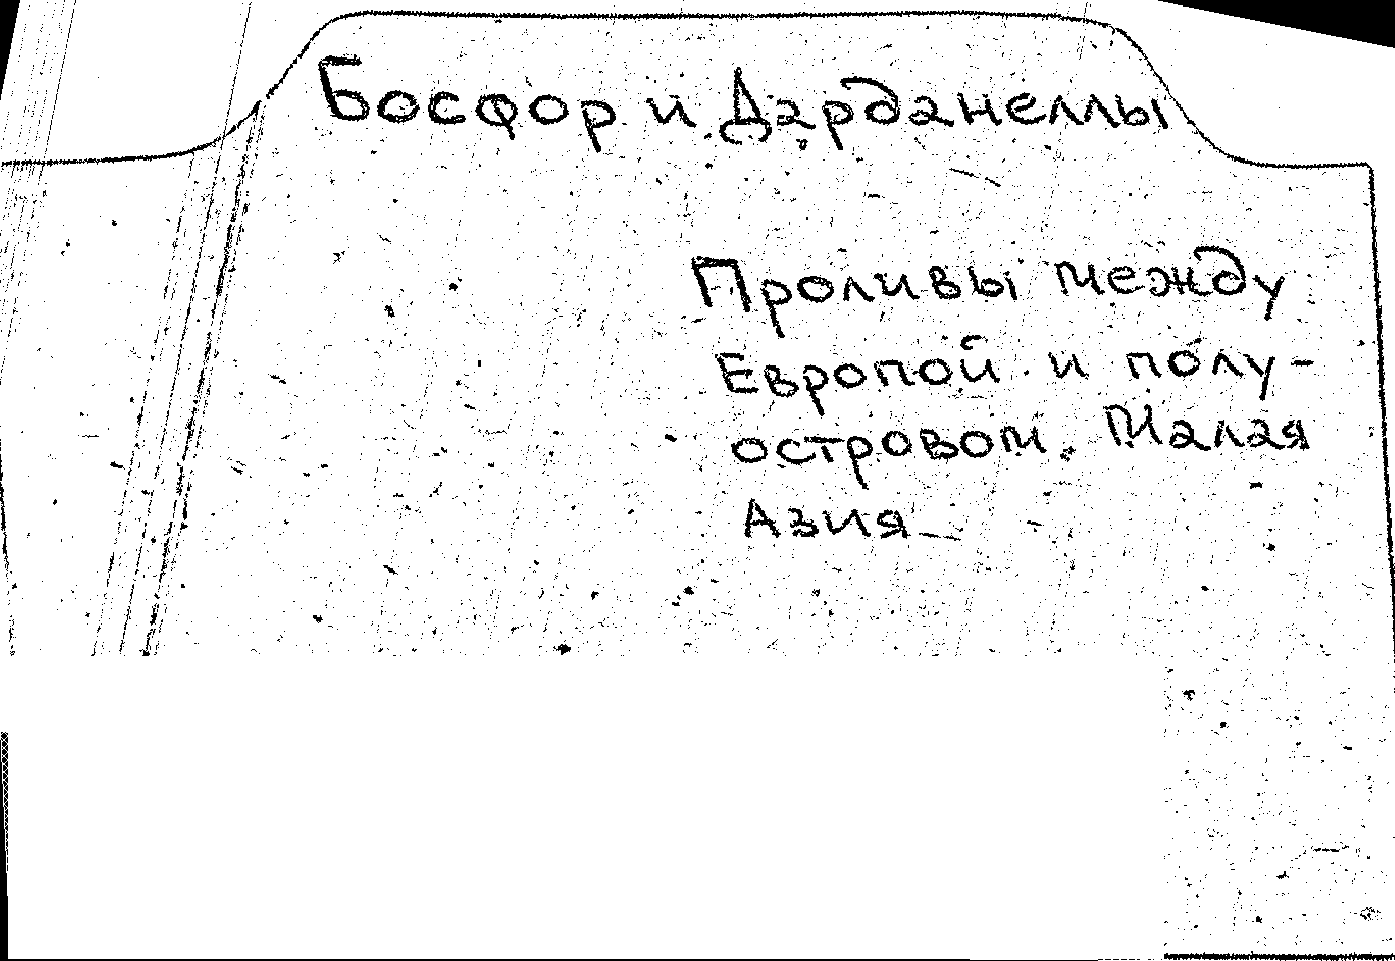 Босфор и Дарданеллы
Проливы между
Европой и полу-
островом Малая
Азия